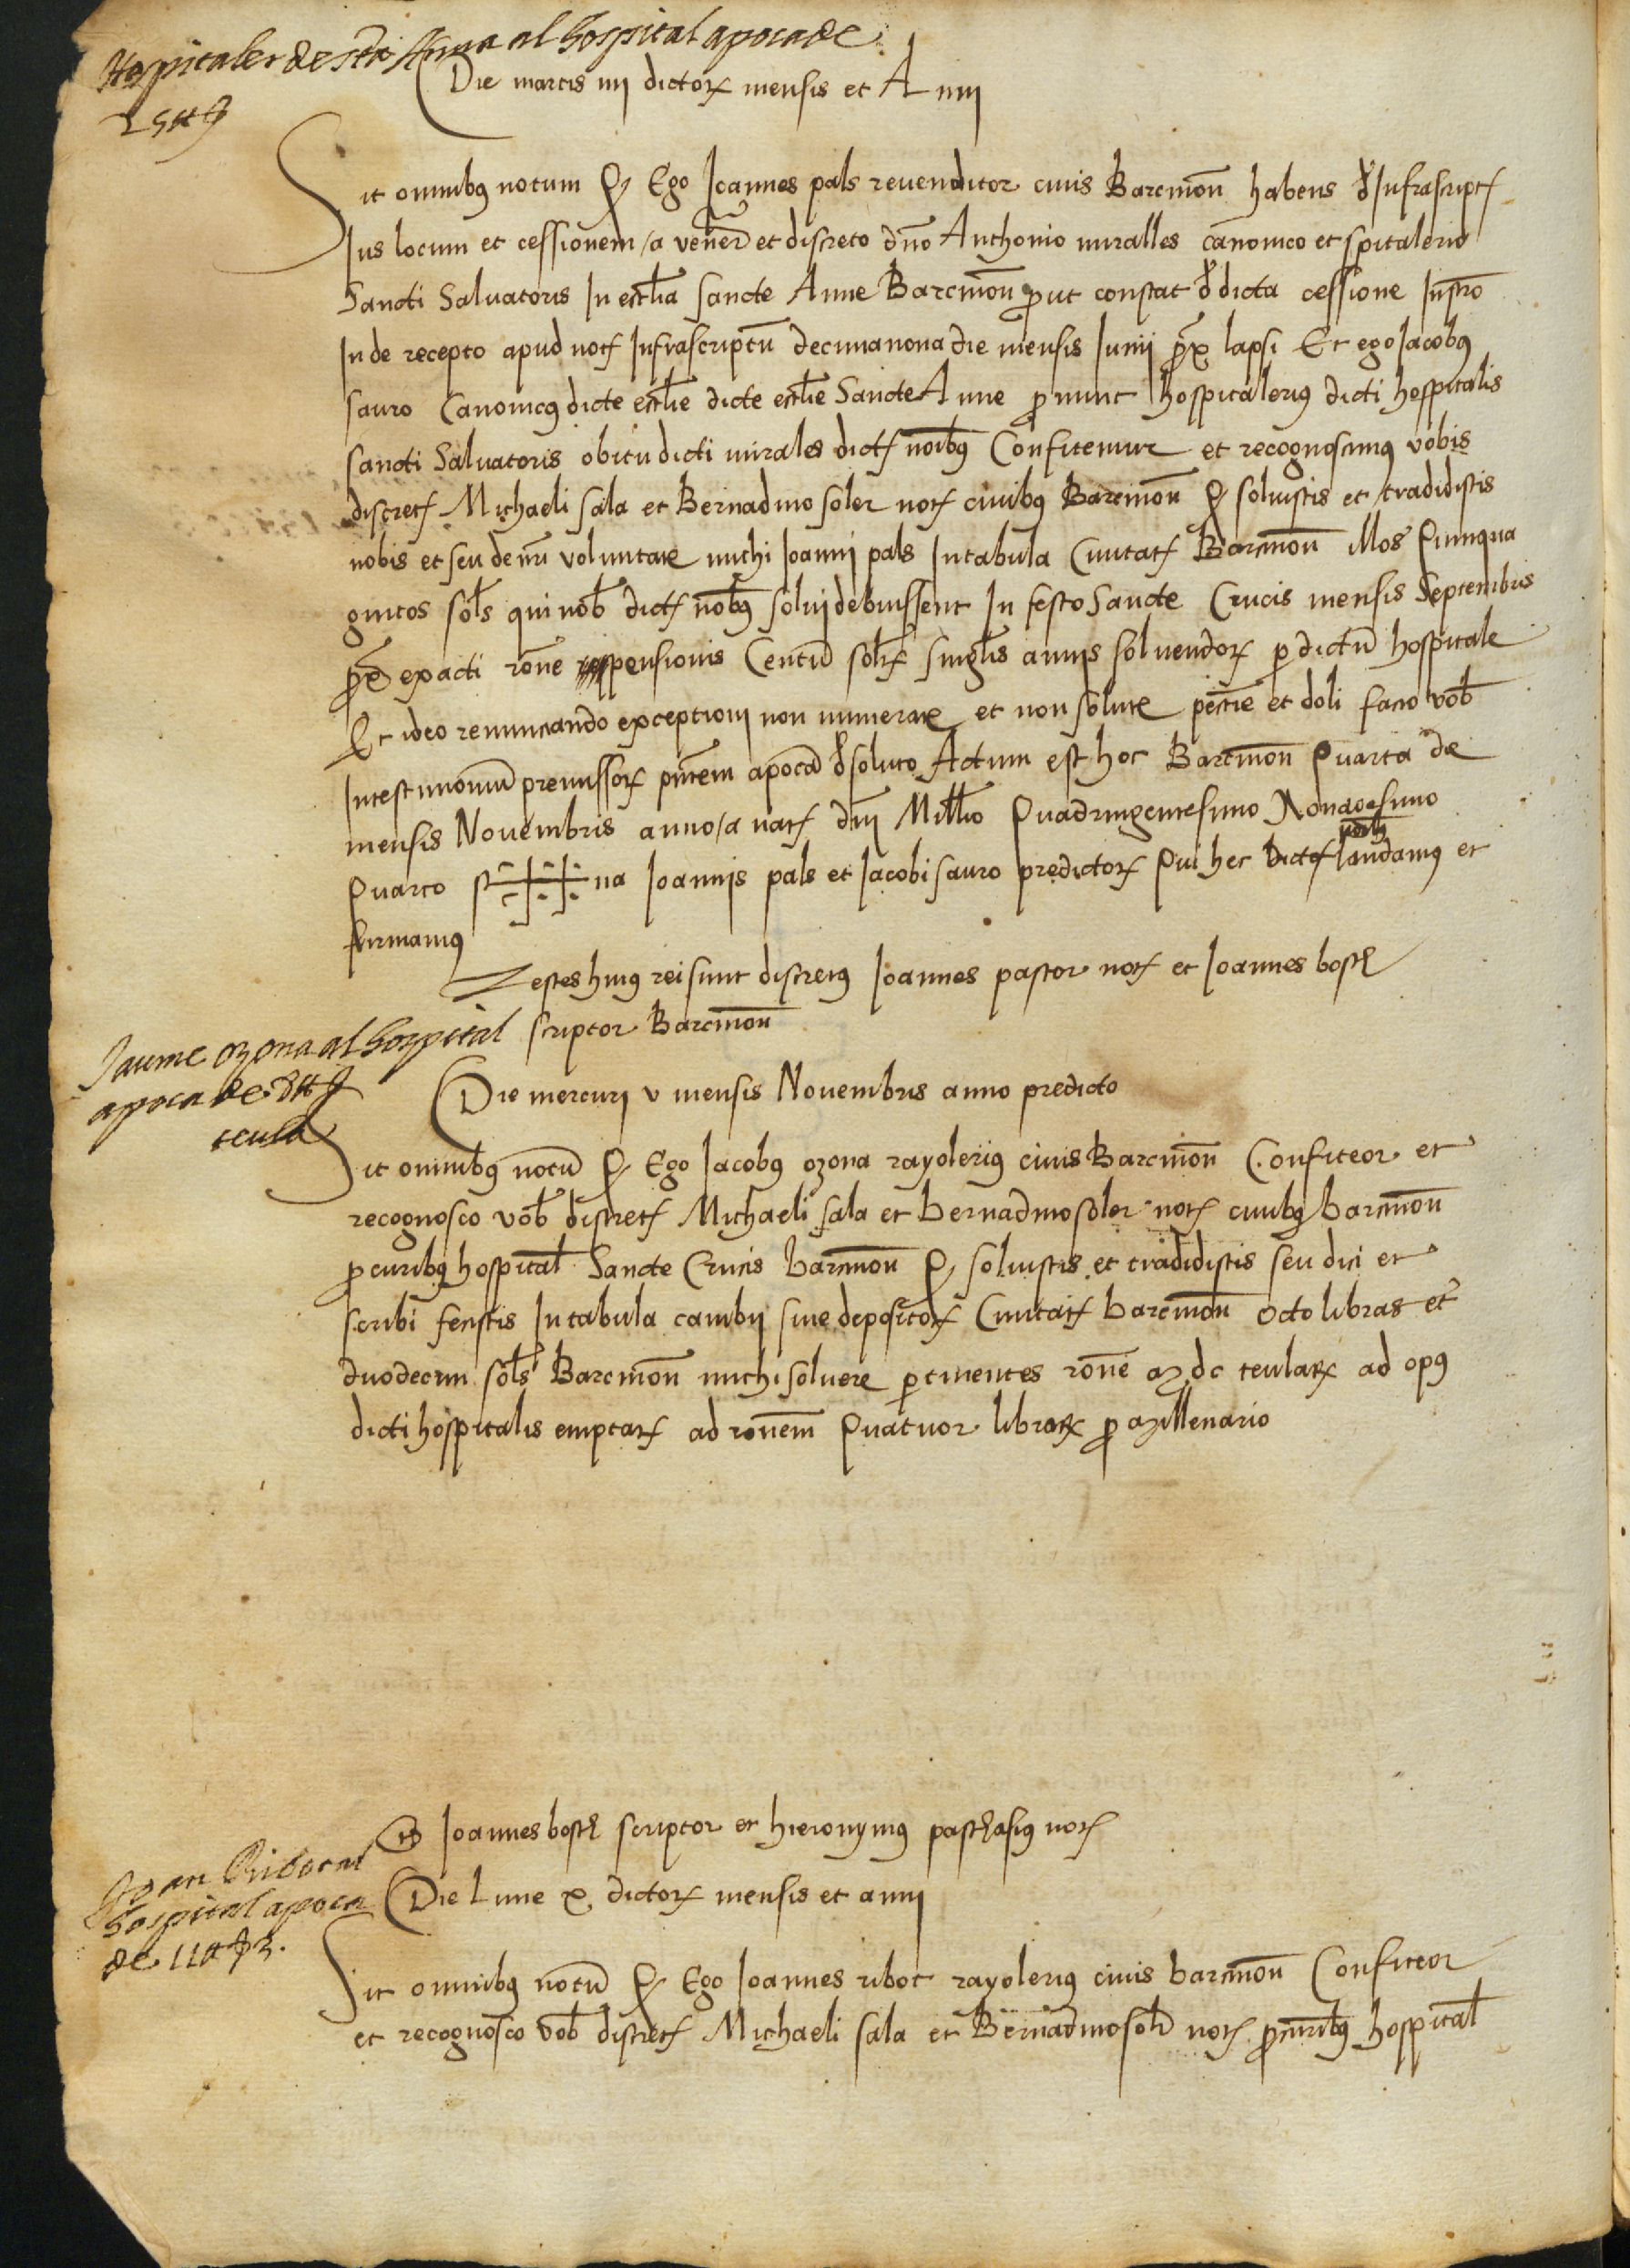 Hospitaler de sta Anna al hospital apoca de
Die martis iiij dictorꝝ mensis et Anni
Sit omnibus notum Q Ego Joannes pals revenditor civis Barcinoñ habens ad Infrascript
Jus locum et cessionem / a veneñ et discreto dño Anthonio miralles canonico et spitalerio
Sancti Salvatoris In ecclia sancte Anne Barcinoñ prout constat de dicta cessione Instro
Inde recepto apud not Infrascriptū decimanona die mensis Junij prox lapsi Et ego Jacobus
sauro Canonicus dicte ecclie dicte ecclie Sancte Anne pro nunc hospitalerius dicti hospitalis
sancti Salvatoris obitu dicti mirales dict noibus Confitemur et recognoscimus vobis
discret Michaeli sala et Bernadino soler not civibus Barcinoñ Q solvistis et tradidistis
nobis et seu de nri voluntate michi Joanni pals In tabula Civitat Barcinoñ illos Quinqua
gintos sols qui nob dict nobus solvi debuissent In festo Sancte Crucis mensis Septembris
prox exacti rone pensionis Centū solꝝ singlis annis solvendorꝝ p dictū hospitale
Et ideo renunciando exceptioni non numerate et non solute peccie et doli facio vob
In testimoniū premissorꝝ pntem apocā de soluto Actum est hoc Barcinoñ Quarta die
mensis Novembris anno / a nat dni Millio Quadringentesimo Nonagesimo
Quarto sig na Joannis pals et Jacobi sauro predictorꝝ Qui hec dict noibus laudamus et
firmamus
Testes huius rei sunt discretus Joannes pastor not et Joannes bosch
scriptor Barcinoñ
Jaume ozona al hospital
apoca de
teula
Die mercurij v mensis Novembris anno predicto
Sit omnibus notū Q Ego Jacobus ozona rayolerius civis Barcinoñ Confiteor et
recognosco vob discret Michaeli sala et bernadino soler not civibus barcinoñ
pcuribus hospital Sancte Crucis barcinoñ Q solvistis et tradidistis seu dici et
scribi fecistis In tabula cambij sive depositorꝝ Civitat barcinoñ octo libras et
duodecim sols Barcinoñ michi solvere ptinentes rone teularꝝ ad opus
dicti hospitalis emptarꝝ ad ronem Quatuor librarꝝ p millenario
ts Joannes bosch scriptor et hieronymus paschasius not
Joan Ribot al
hospital apoca
de
Die Lune x dictorꝝ mensis et anni
Sit omnibus notū Q Ego Joannes ribot rayolerius civis barcinoñ Confiteor
et recognosco vob discret Michaeli sala et Bernadino soler not pcuribus hospital